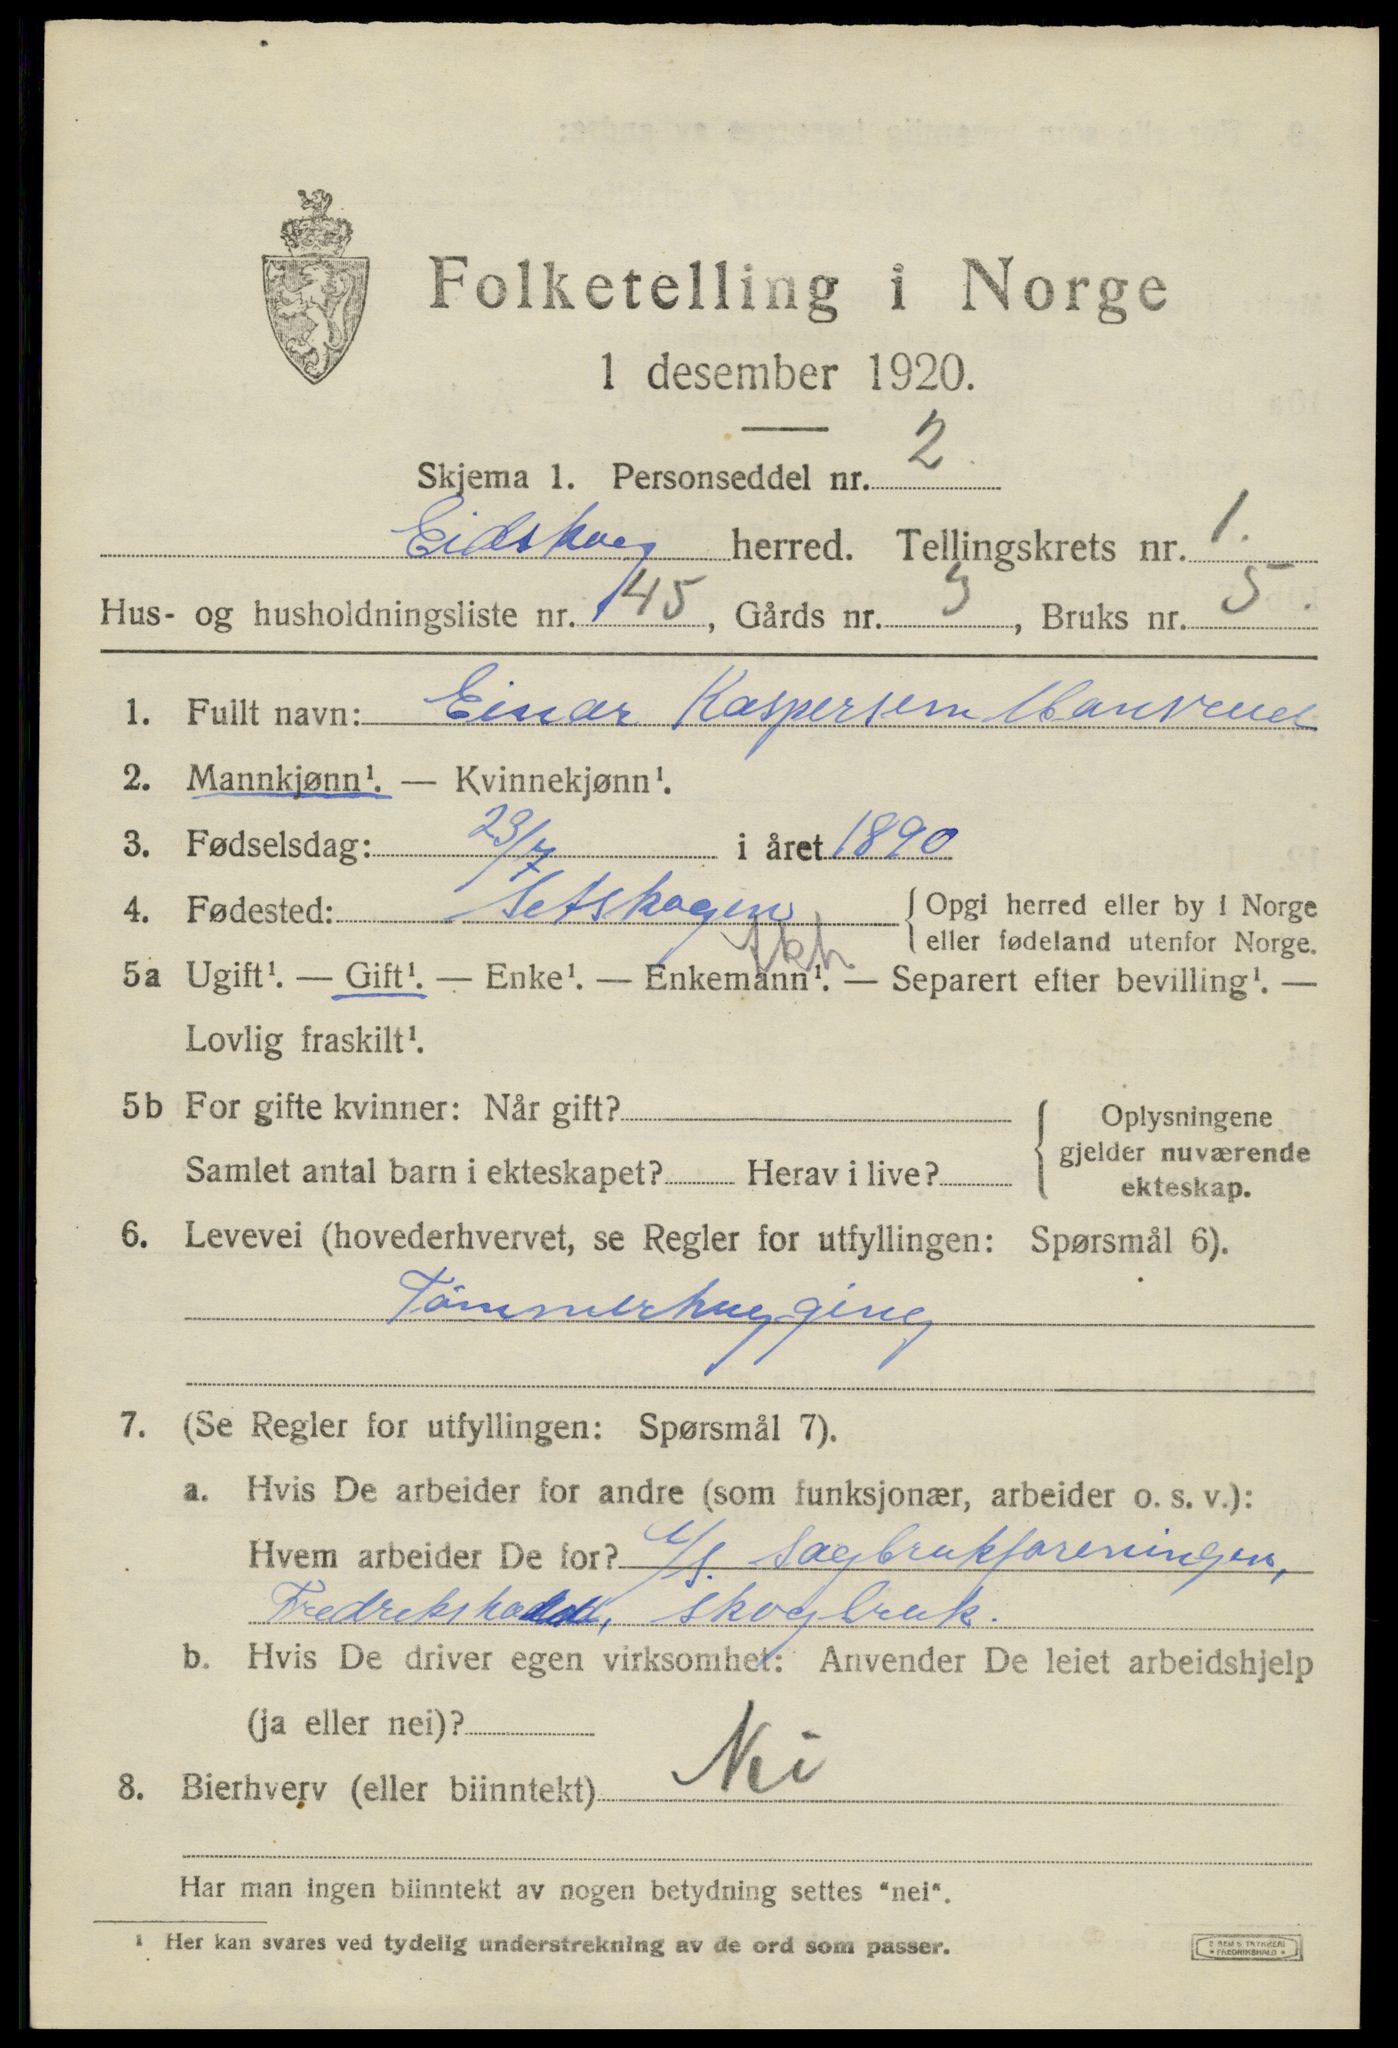 Folketelling i Norge
1 desember 1920.
Skjema 1. Personseddel nr. 2
Eidskog herred. Tellingskrets nr. 1.
Hus- og husholdningsliste nr. 145, Gårds nr. 3, Bruks nr. 5.
1. Fullt navn: Einar Kaspersen
2. Mannkjønn¹. — Kvinnekjønn¹.
3. Fødselsdag: 23/7 i året 1890
4. Fødested: Setskogen { Opgi herred eller by i Norge
eller fødeland utenfor Norge.
Akh
5a Ugift¹. — Gift¹. — Enke¹. — Enkemann¹. — Separert efter bevilling¹. —
Lovlig fraskilt¹.
5b For gifte kvinner: Når gift? { Oplysningene
gjelder nuværende
Samlet antal barn i ekteskapet? Herav i live? ekteskap.
6. Levevei (hovederhvervet, se Regler for utfyllingen: Spørsmål 6).
Tömmerhugging
7. (Se Regler for utfyllingen: Spørsmål 7).
a. Hvis De arbeider for andre (som funksjonær, arbeider o. s. v.):
Hvem arbeider De for? Sagbrukforeningen,
Fredrikshald, skogbruk.
b. Hvis De driver egen virksomhet: Anvender De leiet arbeidshjelp
(ja eller nei)?
8. Bierhverv (eller biinntekt) Nei
Har man ingen biinntekt av nogen betydning settes "nei".
¹ Her kan svares ved tydelig understrekning av de ord som passer.
E SEM'S TRYKKERI
* FREDRIKSHALD *